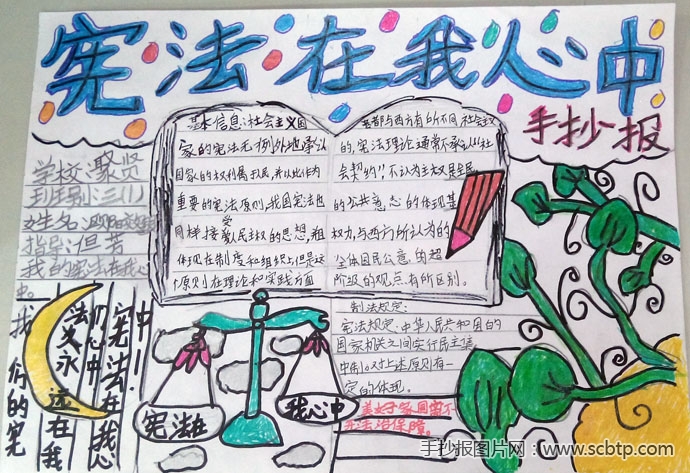 宪法在我心中
手抄报
学校:聚贤
班别:三(1)
姓名:
指导:但芳
我的宪法在我心
中。
基本信息:社会主义国
家的宪法无例外地承认
国家的权利属于民,并以此作为
重要的宪法原则。我国宪法也
同样接受教民主权的思想,and
体现在制度和组织上,但是这
个原则在理论和实践方面
差都与西方有所不同,社会主义
的宪法理论通常不承认从社
会契约,不认为主权是全民
的公共意志的体现,其
权力,与西方所认为的
全体国民公意的超
阶级的观点有所区别。
制法规定:
宪法规定:中华人民共和国的
国家机关之间实行民主集
中制。对上述原则有一
定的体现。
美好家园需不
开法治保障。
宪法在
我心中
中!
宪法在我心
们心中
法永远在我
我们的宪
手抄报图片网:www.scbtp.com